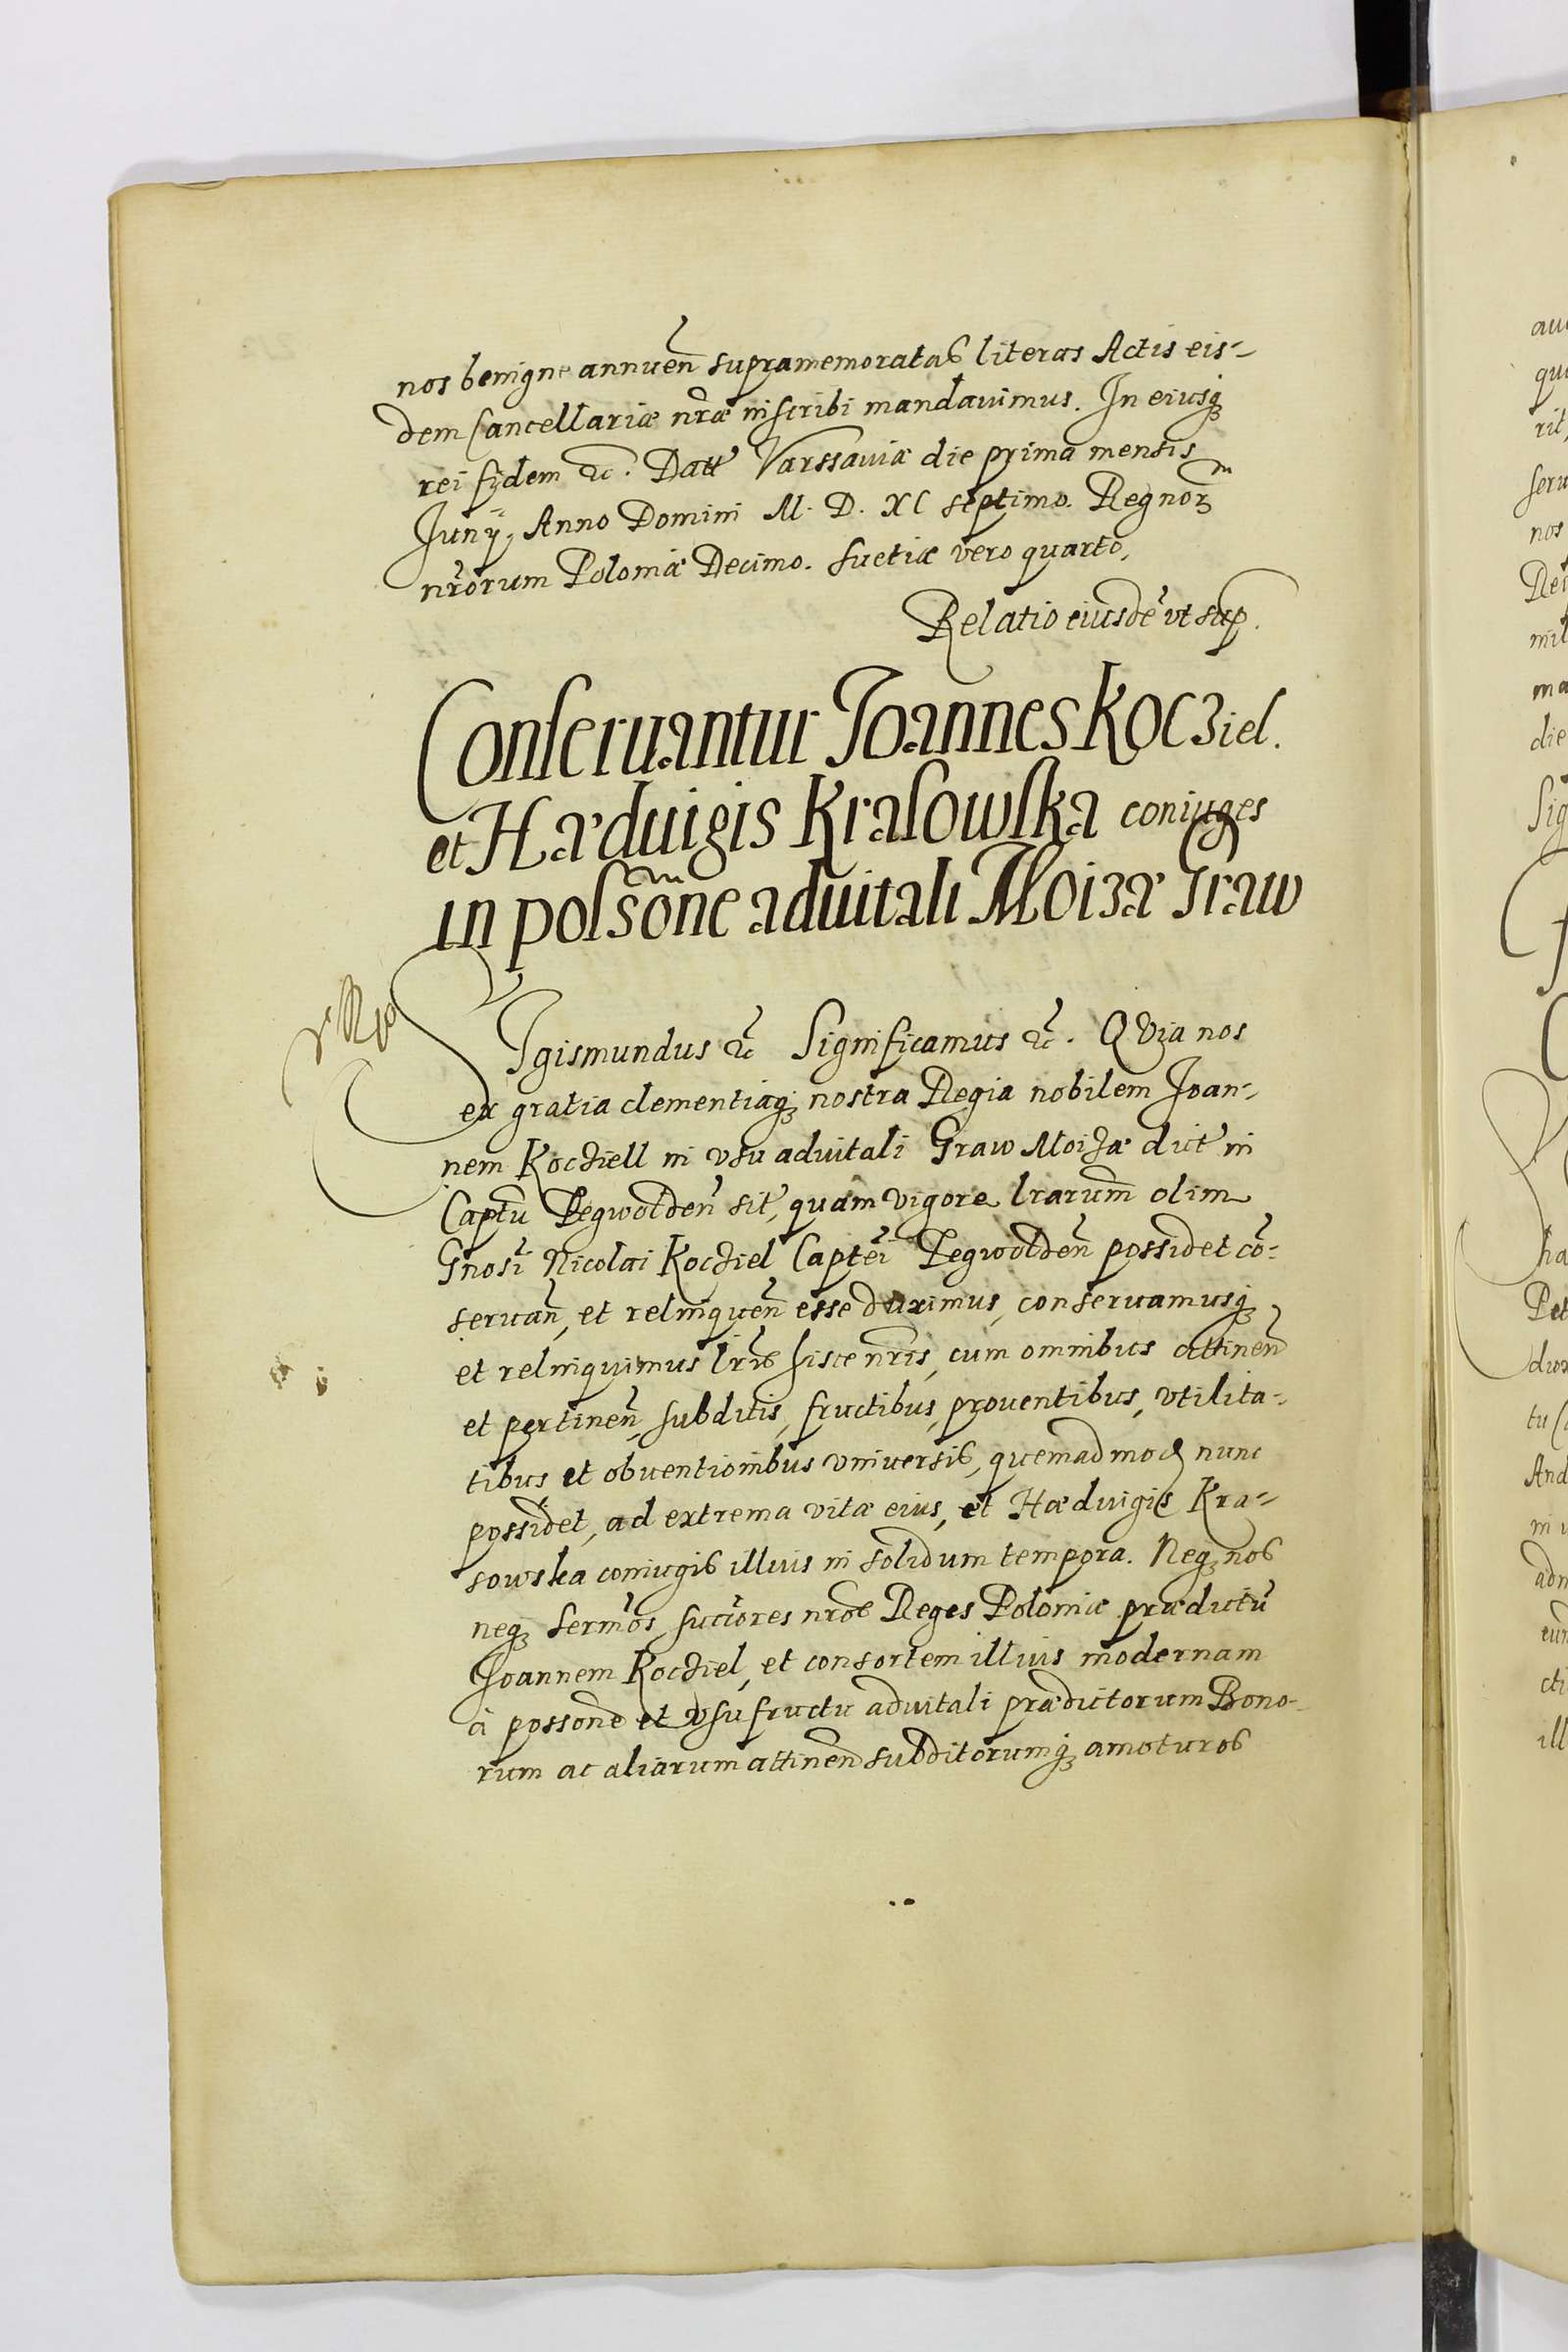 nos benigne annuen̄ supramemoratas literas Actis eis-
dem Cancellariæ nr̄æ inscribi mandauimus. In eiusq́
rei fidem &c. Datt Varssauiæ die prima mensis
Junÿ, Anno Domini M. D. XC septimo. Regnor̄
nr̄orum Poloniæ Decimo. Suetiæ vero quarto.
Relatio eiusdē vt sup.
Conseruantur Joannes Koc3iel.
et Hæduigis Krasowska coniuges
in possōne aduitali Moizæ Graw
SJgismundus &c Significamus &c. QVia nos
ex gratia clementiaq́ nostra Regia nobilem Joan-
nem Koc3iell in vsu aduitali Graw Moi3æ dict in
Captu Regwolden̄ sit, quam vigore lrarum olim
Gnosi Nicolai Koc3iel Captei Regwolden̄ possidet cō-
seruan̄, et relinquen̄ esse duximus, conseruamusq́
et relinquimus lr̄is hisce nr̄is, cum omnibus attinen̄
et pertinen̄, subditis, fructibus, prouentibus, vtilita-
tibus et obuentionibus vniuersis, quemadmod nunc
possidet, ad extrema vitæ eius, et Hæduigis Kra-
sowska coniugis illius in solidum tempora. Neq́ nos
neq́ sermos succ̄ores nr̄os Reges Poloniæ prædictū
Joannem Koc3iel, et consortem illius modernam
à possone et vsufructu aduitali prædictorum Bono-
rum ac aliarum attinen̄ subditorumq́ amoturos
au
qu
rit,
seru
nos
Re
mil
ma
die
Sig
ha
Pet
dux
tu C
And
in u
adm
eun
cti
ill